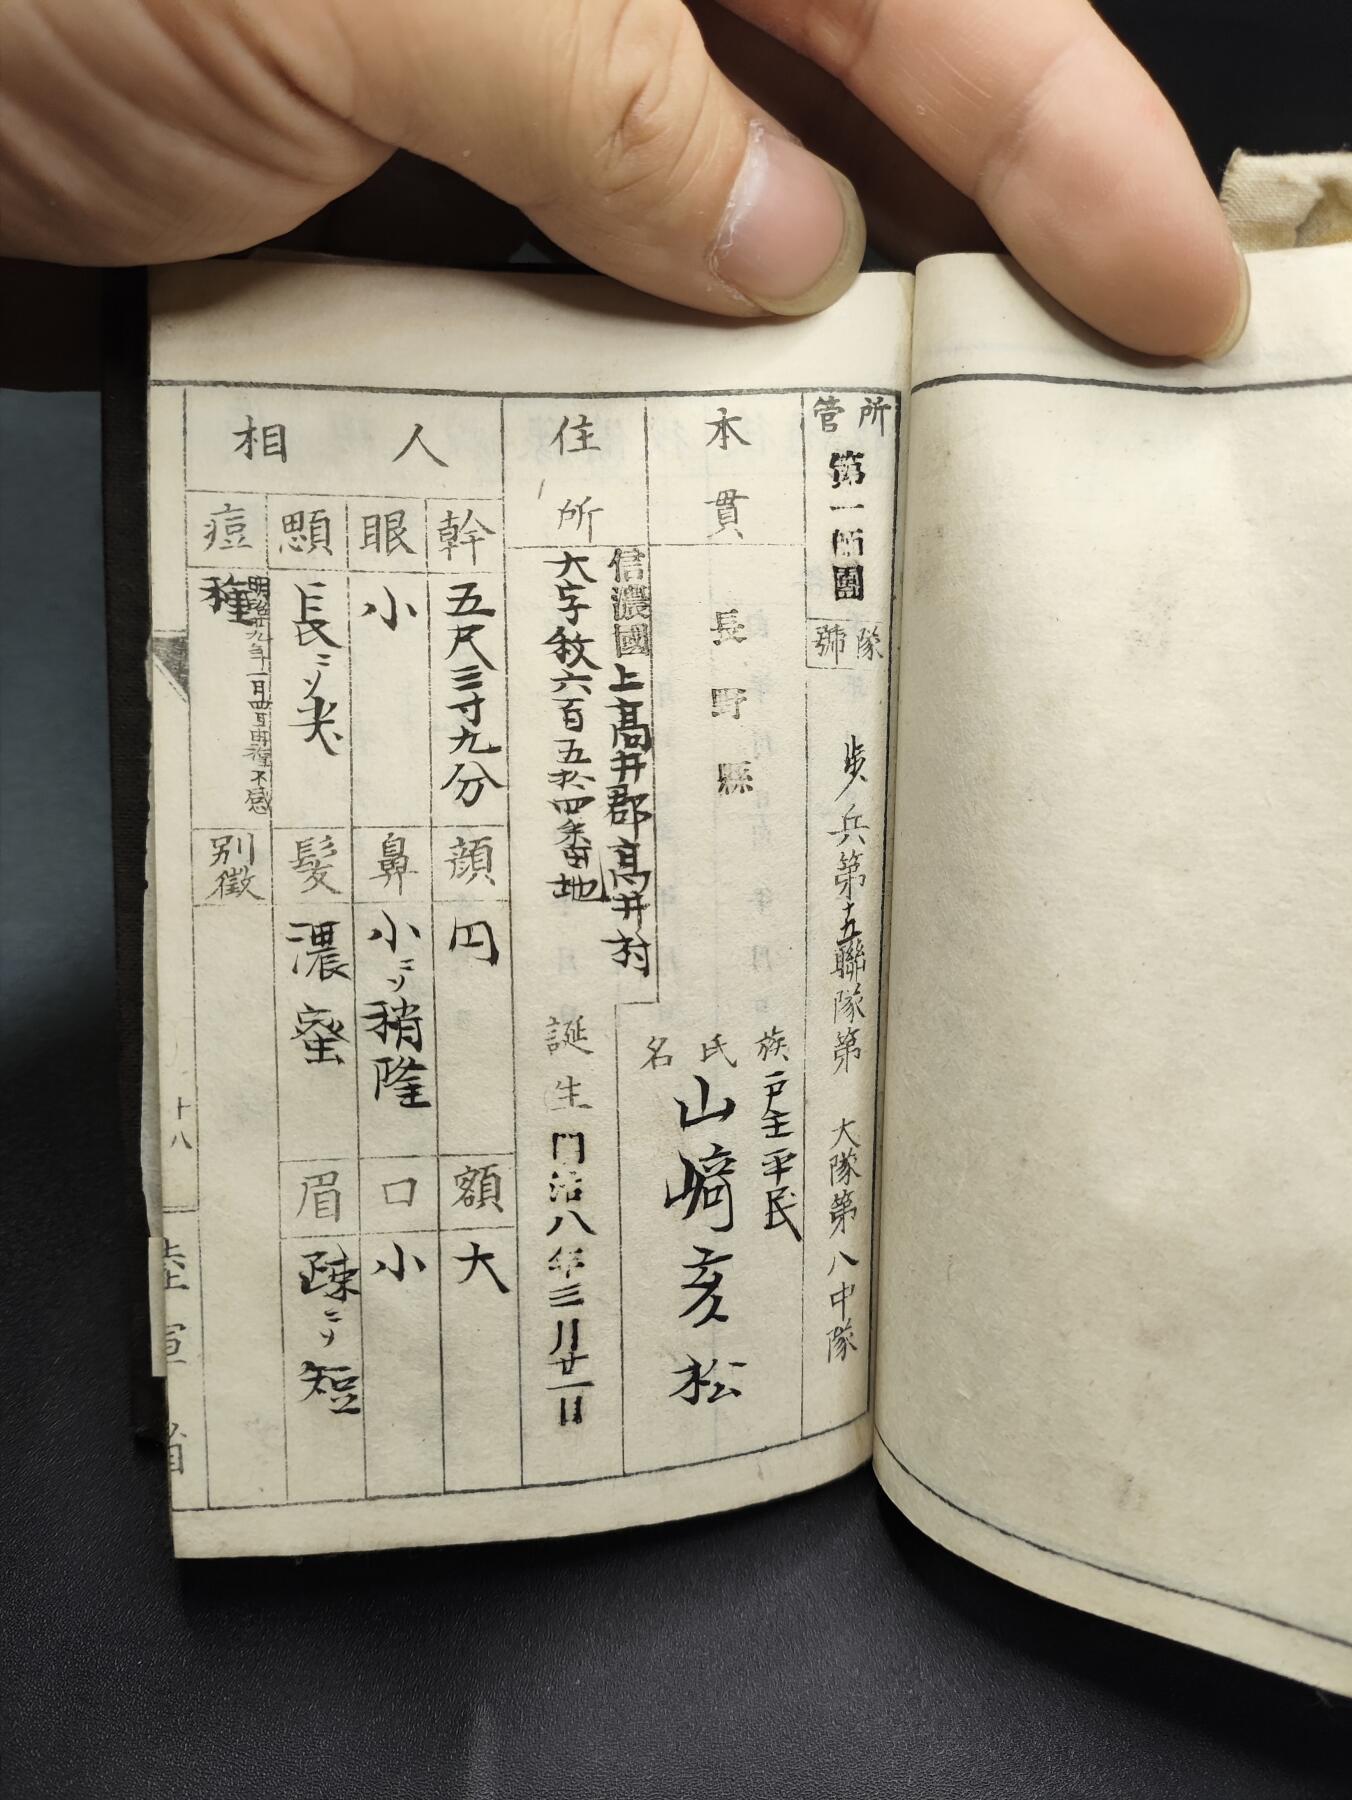 所管 第一師團
隊號 歩兵第十五聯隊第 大隊第八中隊
本貫 長野縣
族 戸主平民
氏名 山﨑亥松
住所 信濃國上高井郡高井村
大字牧六百五拾四番地
誕生 明治八年三月廿一日
人相
幹 五尺三寸九分
顔 円
額 大
眼 小
鼻 小ニソ稍隆
口 小
顋 長ニソ尖
髪 濃密
眉 疎ニソ短
痘 種
明治廿九年一月四日再種不感
別徴
十八
陸軍省